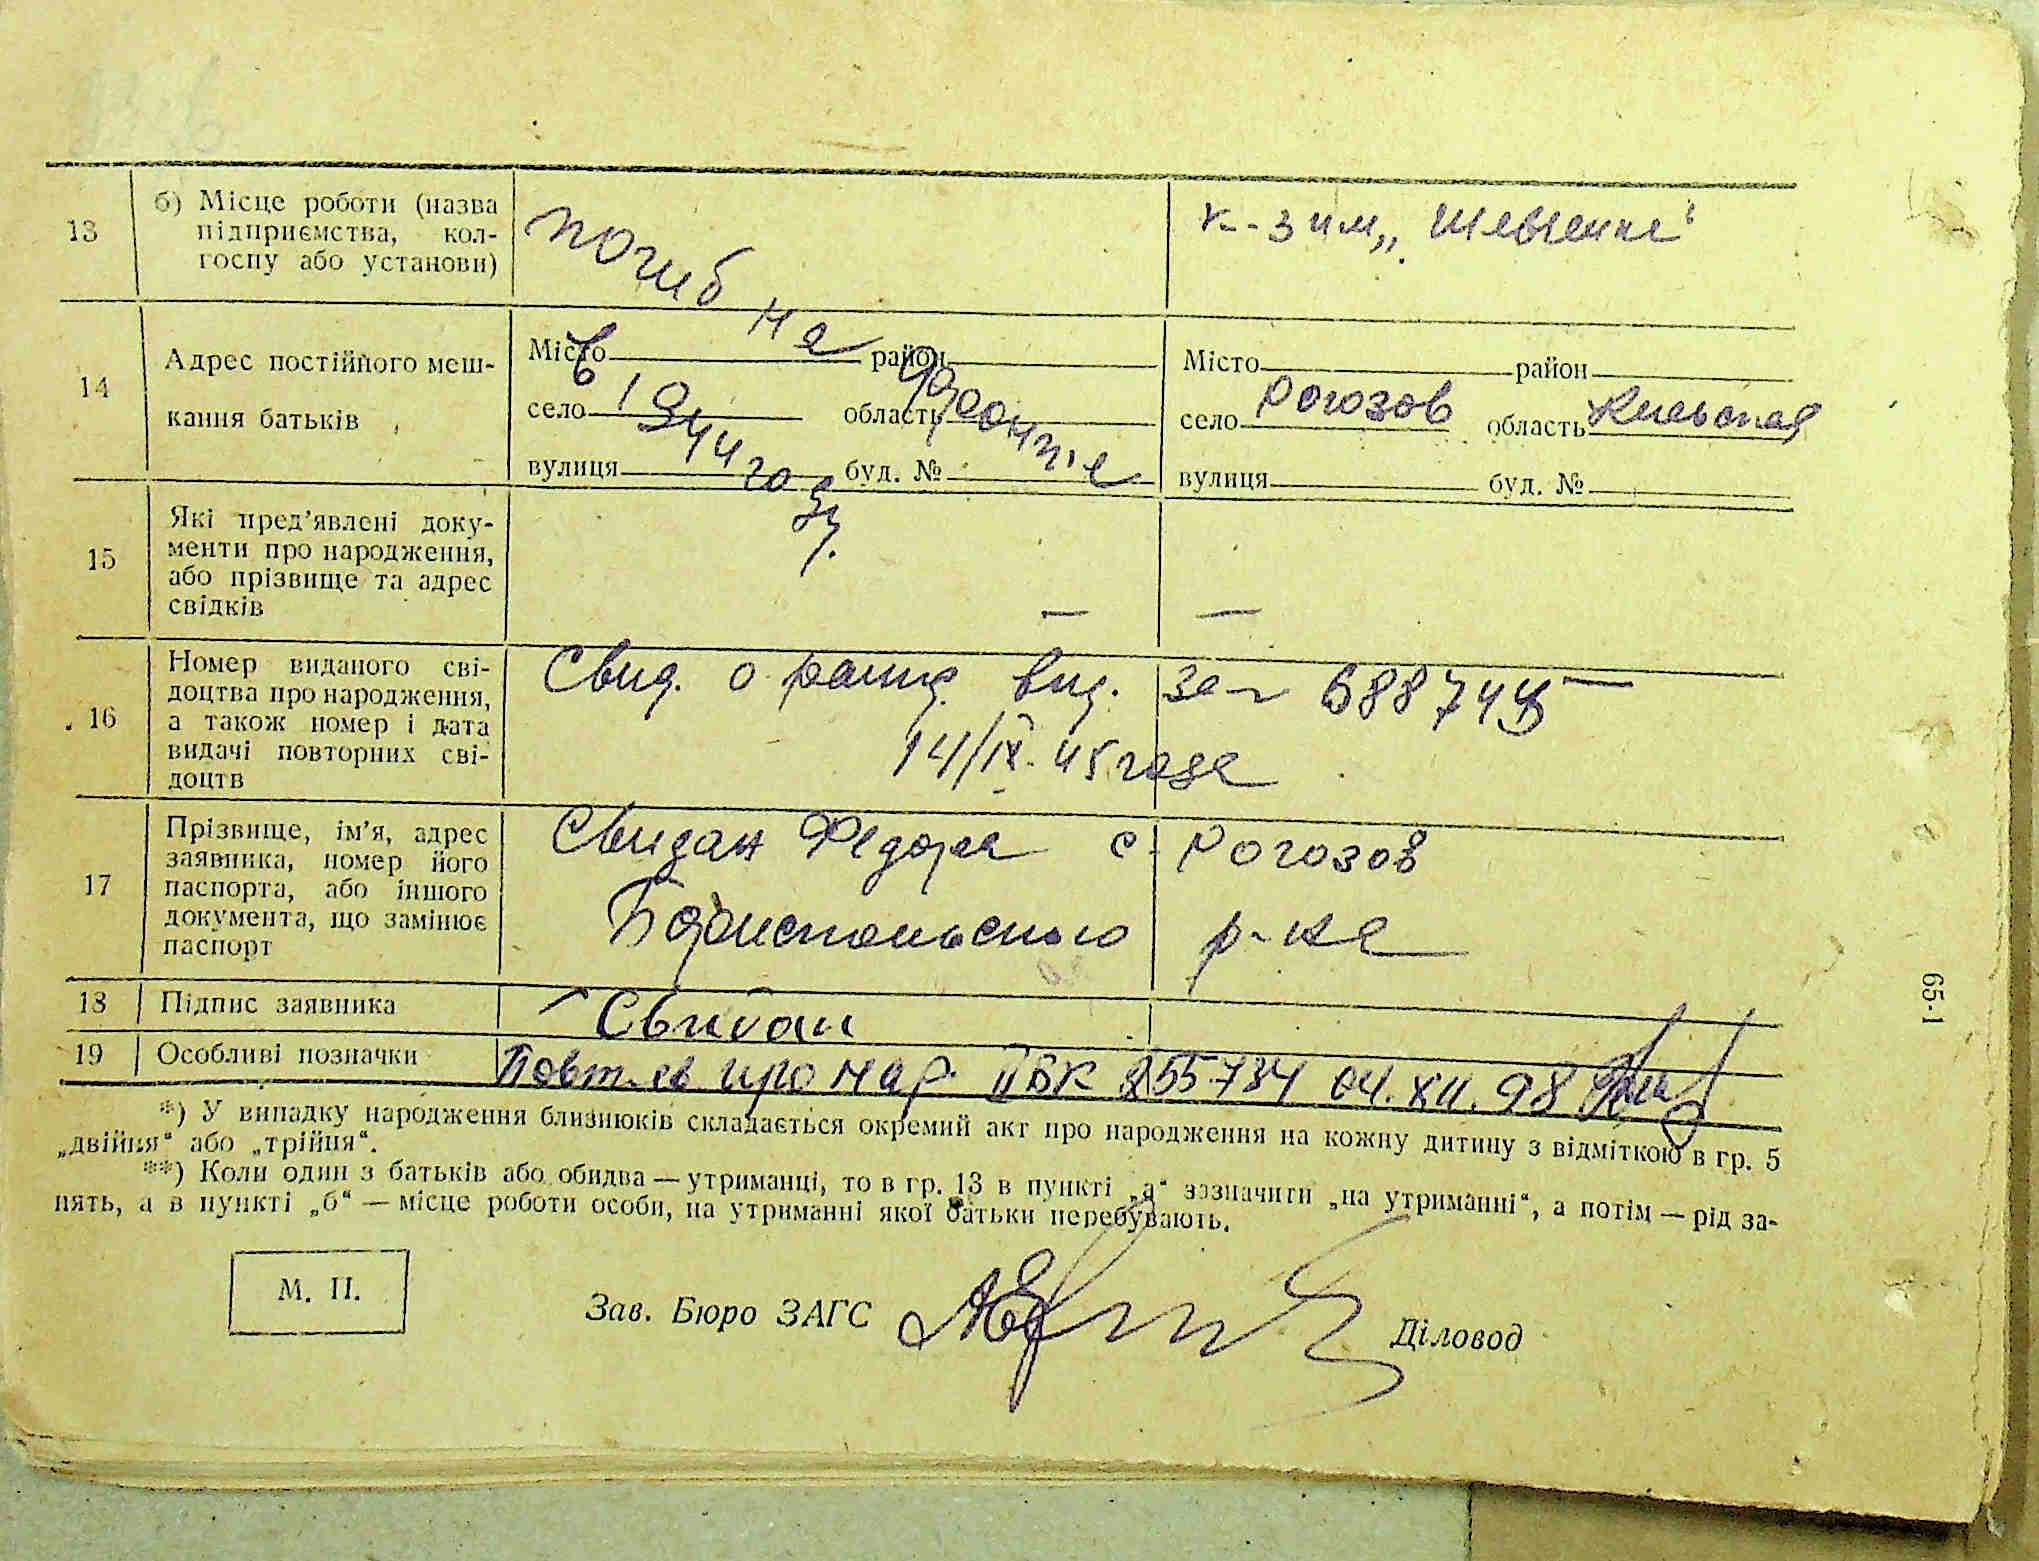 13 б) Місце роботи (назва
підприємства, кол-
госпу або установи)
погиб на фронте
в 1944 году.
к-з им „Шевченка“
14 Адрес постійного меш-
кання батьків
Місто район
село область
вулиця буд. №
Місто район
село Рогозов область Киевская
вулиця буд. №
15 Які пред’явлені доку-
менти про народження,
або прізвище та адрес
свідків
— —
16 Номер виданого сві-
доцтва про народження,
а також номер і дата
видачі повторних сві-
доцтв
Свид. о рожд. выд. за №
14/IX. 45 года
17 Прізвище, ім’я, адрес
заявника, номер його
паспорта, або іншого
документа, що замінює
паспорт
Свидан Федора с. Рогозов
Бориспольского р-на
18 Підпис заявника
Свидан
19 Особливі позначки
Повт. св про нар. ІІ БК 255734 04.XII.98
*) У випадку народження близнюків складається окремий акт про народження на кожну дитину з відміткою в гр. 5
„двійня“ або „трійня“.
**) Коли один з батьків або обидва — утриманці, то в гр. 13 в пункті „а“ зазначити „на утриманні“, а потім — рід за-
нять, а в пункті „б“ — місце роботи особи, на утриманні якої батьки перебувають.
М. П.
Зав. Бюро ЗАГС
Діловод
65-1